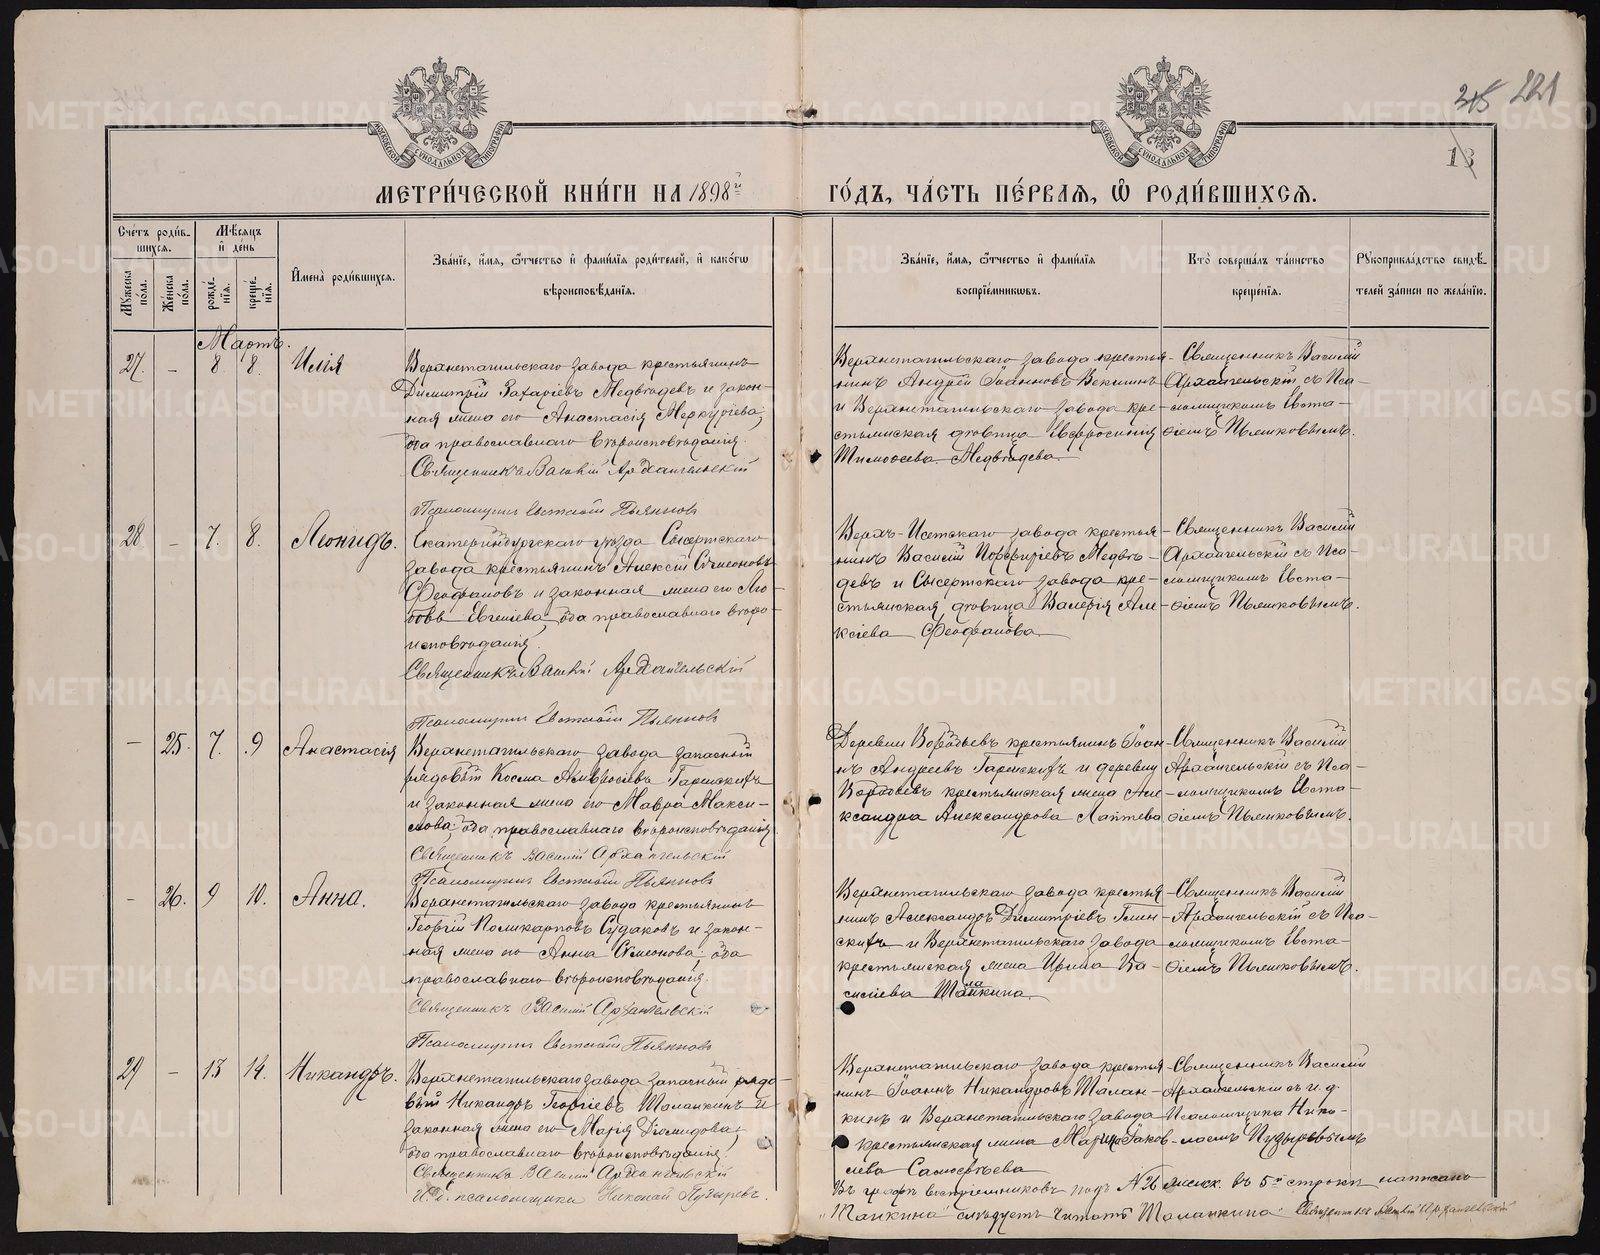 315 221
13
МОСКОВСКОЙ СѴНОДАЛЬНОЙ ТИПОГРАФІИ
МОСКОВСКОЙ СѴНОДАЛЬНОЙ ТИПОГРАФІИ
МЕТРИ́ЧЕСКОЙ КНИ́ГИ НА 1898й
ГО́ДЪ, ЧА́СТЬ ПЕ́РВАЯ, Ѿ РОДИ́ВШИХСЯ.
Сче́тъ роди́в-
шихся.
Мѣ́сяцъ
и̂ де́нь
Мꙋ́жеска по́ла.
Же́нска по́ла.
рожде́-
нїя.
креще́-
нїя.
И̂мена̀ роди́вшихся.
Зва́нїе, и̂́мя, ѻ̂́тчество и̂ фами́лїя роди́телей, и̂ како́гѡ
вѣроисповѣ́данїя.
Зва́нїе, и̂́мя, ѻ̂́тчество и̂ фами́лїя
воспрїе́мникѡвъ.
Кто̀ соверша́лъ та́инство
креще́нїя.
Рꙋкоприкла́дство свидѣ́-
телей за́писи по жела́нїю.
Мартъ.
27. – 8. 8. Илія
Верхнетагильскаго завода крестьянинъ
Димитрій Захаріевъ Медвѣдевъ и закон-
ная жена его Анастасія Меркуріева,
оба православнаго вѣроисповѣданія.
Священникъ Василій Архангельскій
Псаломщикъ Евстаѳій Пьянковъ
Верхнетагильскаго завода крестья-
нинъ Андрей Іоанновъ Векшинъ
и Верхнетагильскаго завода кре-
стьянская дѣвица Евфросинія
Тимоѳеева Медвѣдева.
Священникъ Василій
Архангельскій съ Пса-
ломщикомъ Евста-
ѳіемъ Пьянковымъ.
28. – 7. 8. Леонидъ.
Екатеринбургскаго уѣзда Сысертскаго
завода крестьянинъ Алексій Симеоновъ
Феофановъ и законная жена его Лю-
бовь Евгеніева, оба православнаго вѣро-
исповѣданія.
Священникъ Василій Архангельскій
Псаломщикъ Евстаѳій Пьянковъ
Верхъ-Исетскаго завода крестья-
нинъ Василій Порфиріевъ Медвѣ-
девъ и Сысертскаго завода кре-
стьянская дѣвица Валерія Але-
ксіева Феофанова.
Священникъ Василій
Архангельскій съ Пса-
ломщикомъ Евста-
ѳіемъ Пьянковымъ.
– 25. 7. 9 Анастасія
Верхнетагильскаго завода запасный
рядовой Косма Амвросіевъ
и законная жена его Мавра Макси-
мова, оба православнаго вѣроисповѣданія.
Священникъ Василій Архангельскій
Псаломщикъ Евстаѳій Пьянковъ
Деревни Воробьевъ крестьянинъ Іоан-
нъ Андреевъ и деревни
Воробьевъ крестьянская жена Але-
ксандра Александрова Лаптева
Священникъ Василій
Архангельскій съ Пса-
ломщикомъ Евста-
ѳіемъ Пьянковымъ.
– 26. 9 10. Анна.
Верхнетагильскаго завода крестьянинъ
Георгій Поликарповъ Судаковъ и закон-
ная жена его Анна Симеонова, оба
православнаго вѣроисповѣданія.
Священникъ Василій Архангельскій
Псаломщикъ Евстаѳій Пьянковъ
Верхнетагильскаго завода крестья-
нинъ Александръ Димитріевъ Глин-
скихъ и Верхнетагильскаго завода
крестьянская жена Ирина Ва-
силіева Шалапкина.
Священникъ Василій
Архангельскій съ Пса-
ломщикомъ Евста-
ѳіемъ Пьянковымъ.
29 – 13 14. Никандръ.
Верхнетагильскаго завода запасный рядо-
вой Никандръ Георгіевъ Шаланкинъ и
законная жена его Марія Діомидова,
оба православнаго вѣроисповѣданія.
Священникъ Василій Архангельскій
И. д. псаломщика Николай Пузыревъ.
Верхнетагильскаго завода крестья-
нинъ Іоаннъ Никандровъ Шалан-
кинъ и Верхнетагильскаго завода
крестьянская жена Марія Іаков-
лева Салютѣева
Священникъ Василій
Архангельскій съ и. д.
Псаломщика Нико-
лаемъ Пузыревымъ
Въ графѣ воспріемниковъ подъ № 26 женск. въ 5й строкѣ написано
"Шанкина" слѣдуетъ читать "Шаланкина" Священникъ Василій Архангельскій
METRIKI.GASO-URAL.RU